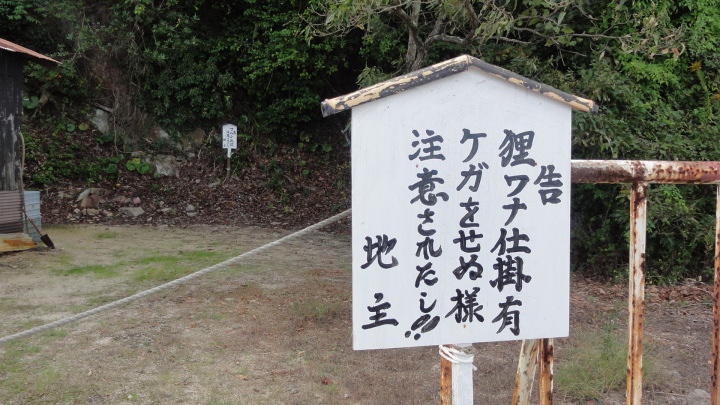 告
狸ワナ仕掛有
ケガをせぬ様
注意されたし!!
地主